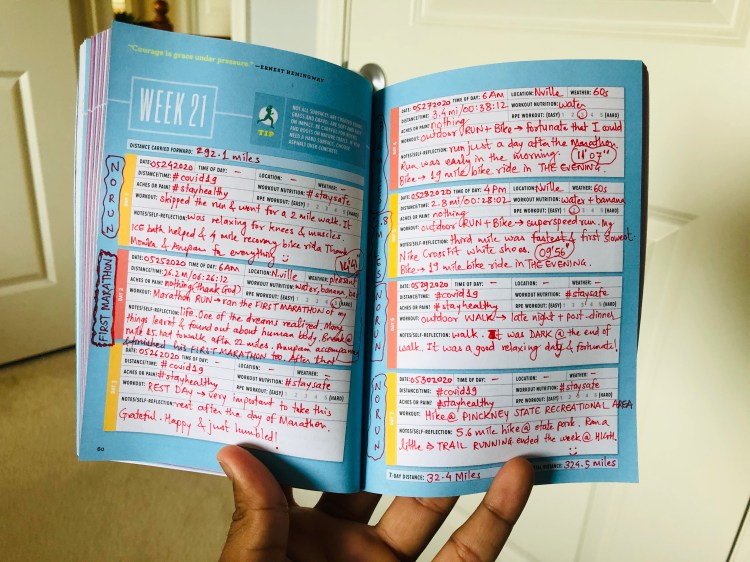 "Courage is grace under pressure." —ERNEST HEMINGWAY
WEEK 21
TIP
DISTANCE CARRIED FORWARD: 292.1 miles
NO RUN
DAY 1
DATE: 05242020 TIME OF DAY: – LOCATION: – WEATHER: –
DISTANCE/TIME: #covid19 WORKOUT NUTRITION: #staysafe
ACHES OR PAIN? #stayhealthy RPE WORKOUT: (EASY) 1 2 3 4 5 (HARD)
WORKOUT: skipped the run & went for a 2 mile walk. It
NOTES/SELF-REFLECTION: was relaxing for knees & muscles.
ICE bath helped & 4 mile recovery bike ride. Thank
Monika & Anupam for everything
FIRST MARATHON
DAY 2
DATE: 05252020 TIME OF DAY: 6AM LOCATION: Nville WEATHER: pleasant
DISTANCE/TIME: 26.2 mi/06:26:12 WORKOUT NUTRITION: water, banana,
ACHES OR PAIN? nothing (thank God) RPE WORKOUT: (EASY) 1 2 3 4 5 (HARD)
WORKOUT: Marathon RUN → ran the FIRST MARATHON of my
NOTES/SELF-REFLECTION: life. One of the dreams realized. Many
things learnt & found out about human body. Break@
mile 15. had to walk after 22 miles. Anupam accompanied
& finished his FIRST MARATHON too. After that
DAY 3
DATE: 05262020 TIME OF DAY: – LOCATION: – WEATHER: –
DISTANCE/TIME: #covid19 WORKOUT NUTRITION: #staysafe
ACHES OR PAIN? #stayhealthy RPE WORKOUT: (EASY) 1 2 3 4 5 (HARD)
WORKOUT: REST DAY → very important to take this
NOTES/SELF-REFLECTION: rest after the day of Marathon.
Grateful. Happy & just humbled!
60
DAY 4
DATE: 05272020 TIME OF DAY: 6AM LOCATION: Nville WEATHER: 60s
DISTANCE/TIME: 3.4 mi/00:38:12 WORKOUT NUTRITION: water
ACHES OR PAIN? nothing RPE WORKOUT: (EASY) 1 2 3 4 5 (HARD)
WORKOUT: outdoor RUN + Bike → fortunate that I could
NOTES/SELF-REFLECTION: run just a day after the Marathon.
Run was early in the morning. 11'07"
Bike → 19 mile bike ride in THE EVENING.
DATE: 05282020 TIME OF DAY: 4 PM LOCATION: Nville WEATHER: 60s
DISTANCE/TIME: 2.8 mi/00:28:02 WORKOUT NUTRITION: water + banana
ACHES OR PAIN? nothing RPE WORKOUT: (EASY) 1 2 3 4 5 (HARD)
WORKOUT: outdoor RUN + Bike → superspeed run. My
NOTES/SELF-REFLECTION: third mile was fastest & first slowest.
Nike CrossFit white shoes. 09'56"
Bike → 19 mile bike ride in THE EVENING.
NO RUN
DATE: 05292020 TIME OF DAY: – LOCATION: – WEATHER: –
DISTANCE/TIME: #covid19 WORKOUT NUTRITION: #staysafe
ACHES OR PAIN? #stayhealthy RPE WORKOUT: (EASY) 1 2 3 4 5 (HARD)
WORKOUT: outdoor WALK → late night + post-dinner
NOTES/SELF-REFLECTION: walk. It was DARK @ the end of
walk. It was a good relaxing day & fortunate!
NO RUN
DATE: 05302020 TIME OF DAY: – LOCATION: – WEATHER: –
DISTANCE/TIME: #covid19 WORKOUT NUTRITION: #staysafe
ACHES OR PAIN? #stayhealthy RPE WORKOUT: (EASY) 1 2 3 4 5 (HARD)
WORKOUT: Hike@ PINCKNEY STATE RECREATIONAL AREA
NOTES/SELF-REFLECTION: 5.6 mile hike@ state park. Ran a
little → TRAIL RUNNING ended the week @ HIGH.
7-DAY DISTANCE: 32.4 Miles DISTANCE: 324.5 miles